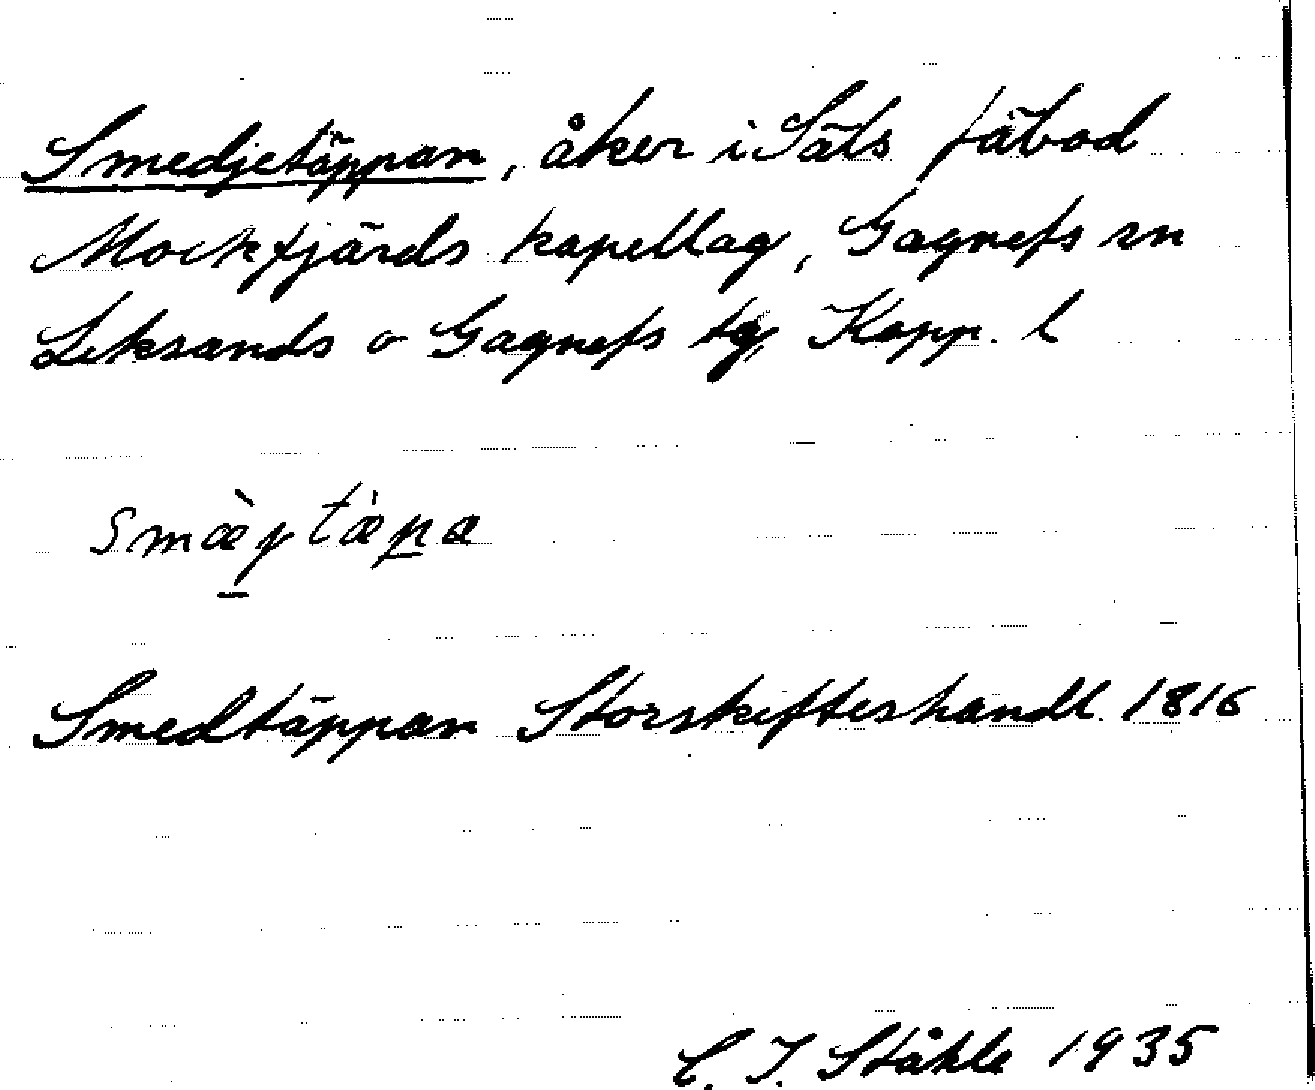 Smedjetäppan, åker i Säls fäbod
Mockfjärds kapellag, Gagnefs sn
Leksands o Gagnefs tg, Kopp. l
smæ̀jtæ̀pa
Smedtäppan Storskifteshandl. 1816
C. I. Ståhle 1935